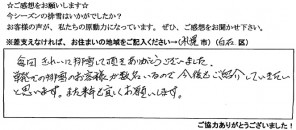 ☆ご感想をお願いします☆
今シーズンの排雪はいかがでしたか？
お客様の声が、私たちの原動力になっています。ぜひ、ご感想をお聞かせ下さい。
※差支えなければ、お住まいの地域をご記入ください→(札幌 市) (白石 区)
毎回きれいに排雪して頂きありがとうございました。
での排雪のお客様が数名いるので今後もご紹介していきたい
と思います。また来年も宜しくお願いします。
ご協力ありがとうございました！